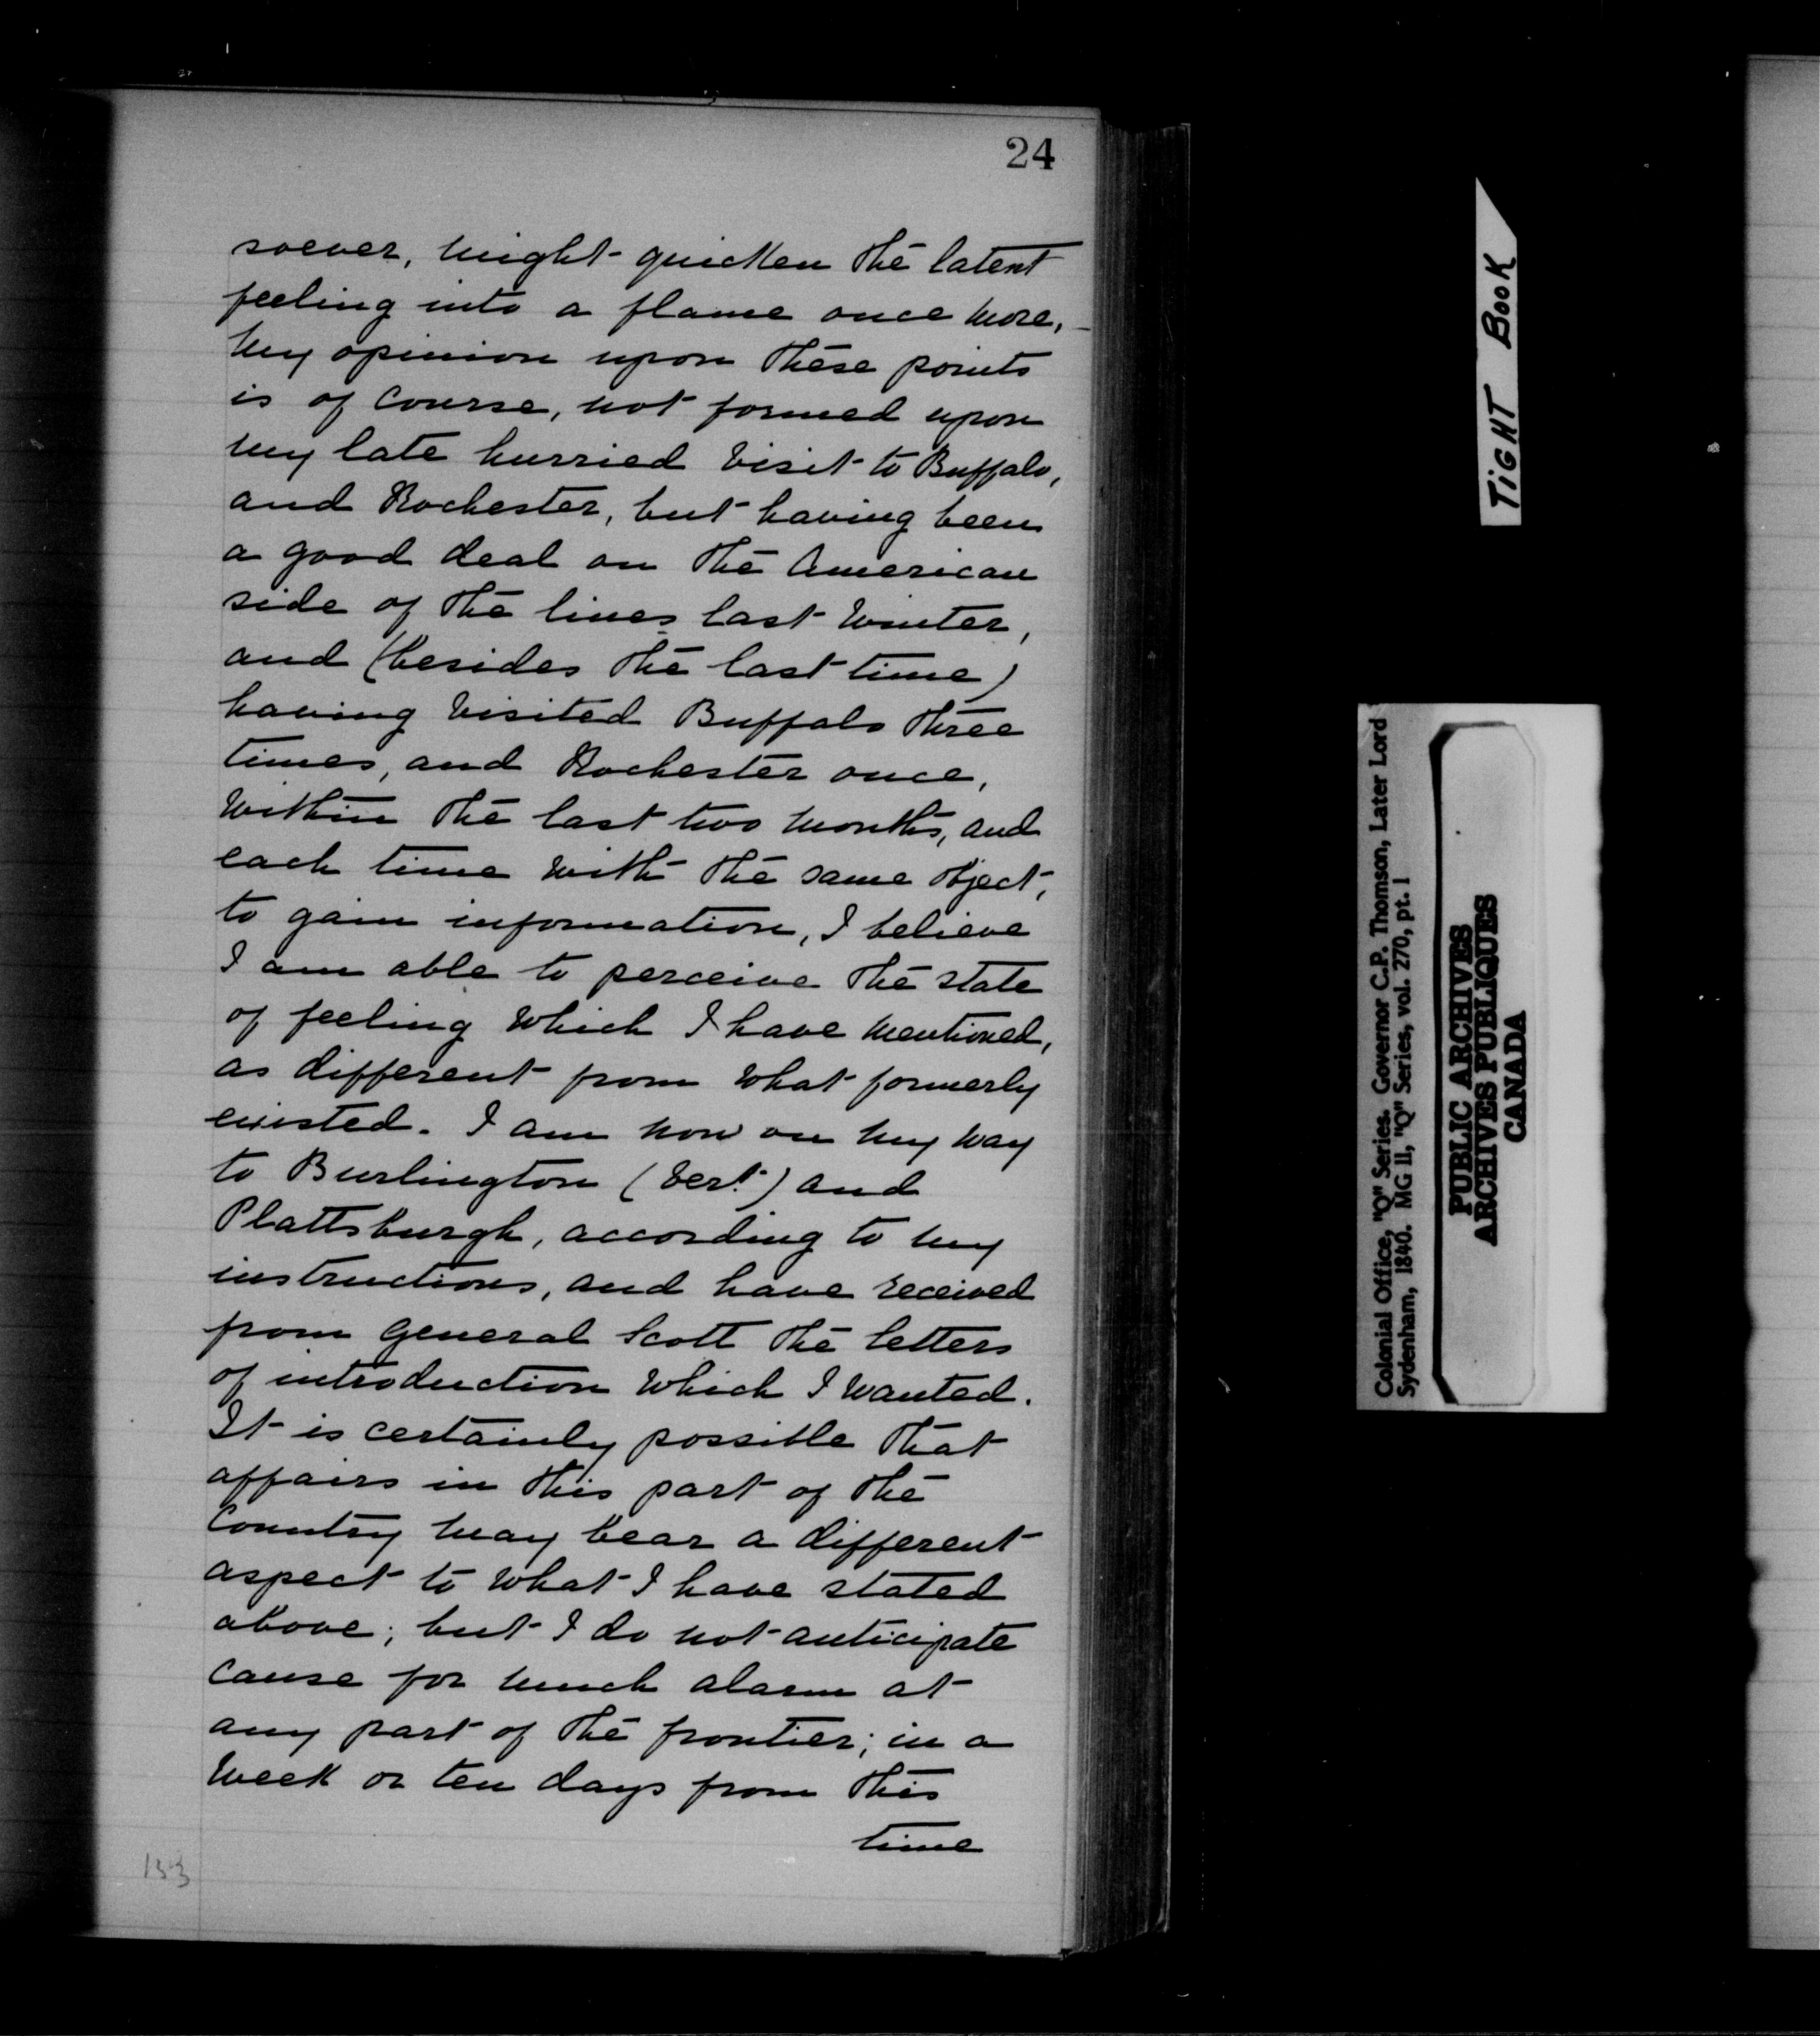 24
soever, might quicken the latent
feeling into a flame once more,
my opinion upon these points
is of course, not formed upon
my late hurried visit to Buffalo,
and Rochester, but having been
a good deal on the American
side of the lines last Winter,
and (besides the last time)
having visited Buffalo three
times, and Rochester once,
within the last two months, and
each time with the same object,
to gain information, I believe
I am able to perceive the state
of feeling which I have mentioned,
as different from what formerly
existed. I am now on my way
to Burlington (Vert.) and
Plattsburgh, according to my
instructions, and have received
from General Scott the letters
of introduction which I wanted.
It is certainly possible that
affairs in this part of the
Country may bear a different
aspect to what I have stated
above; but I do not anticipate
cause for much alarm at
any part of the frontier; in a
week or ten days from this
time
153
TIGHT BOOK
Colonial Office, "Q" Series. Governor C.P. Thomson, Later Lord
Sydenham, 1840. MG 11, "Q" Series, vol. 270, pt. 1
PUBLIC ARCHIVES
ARCHIVES PUBLIQUES
CANADA